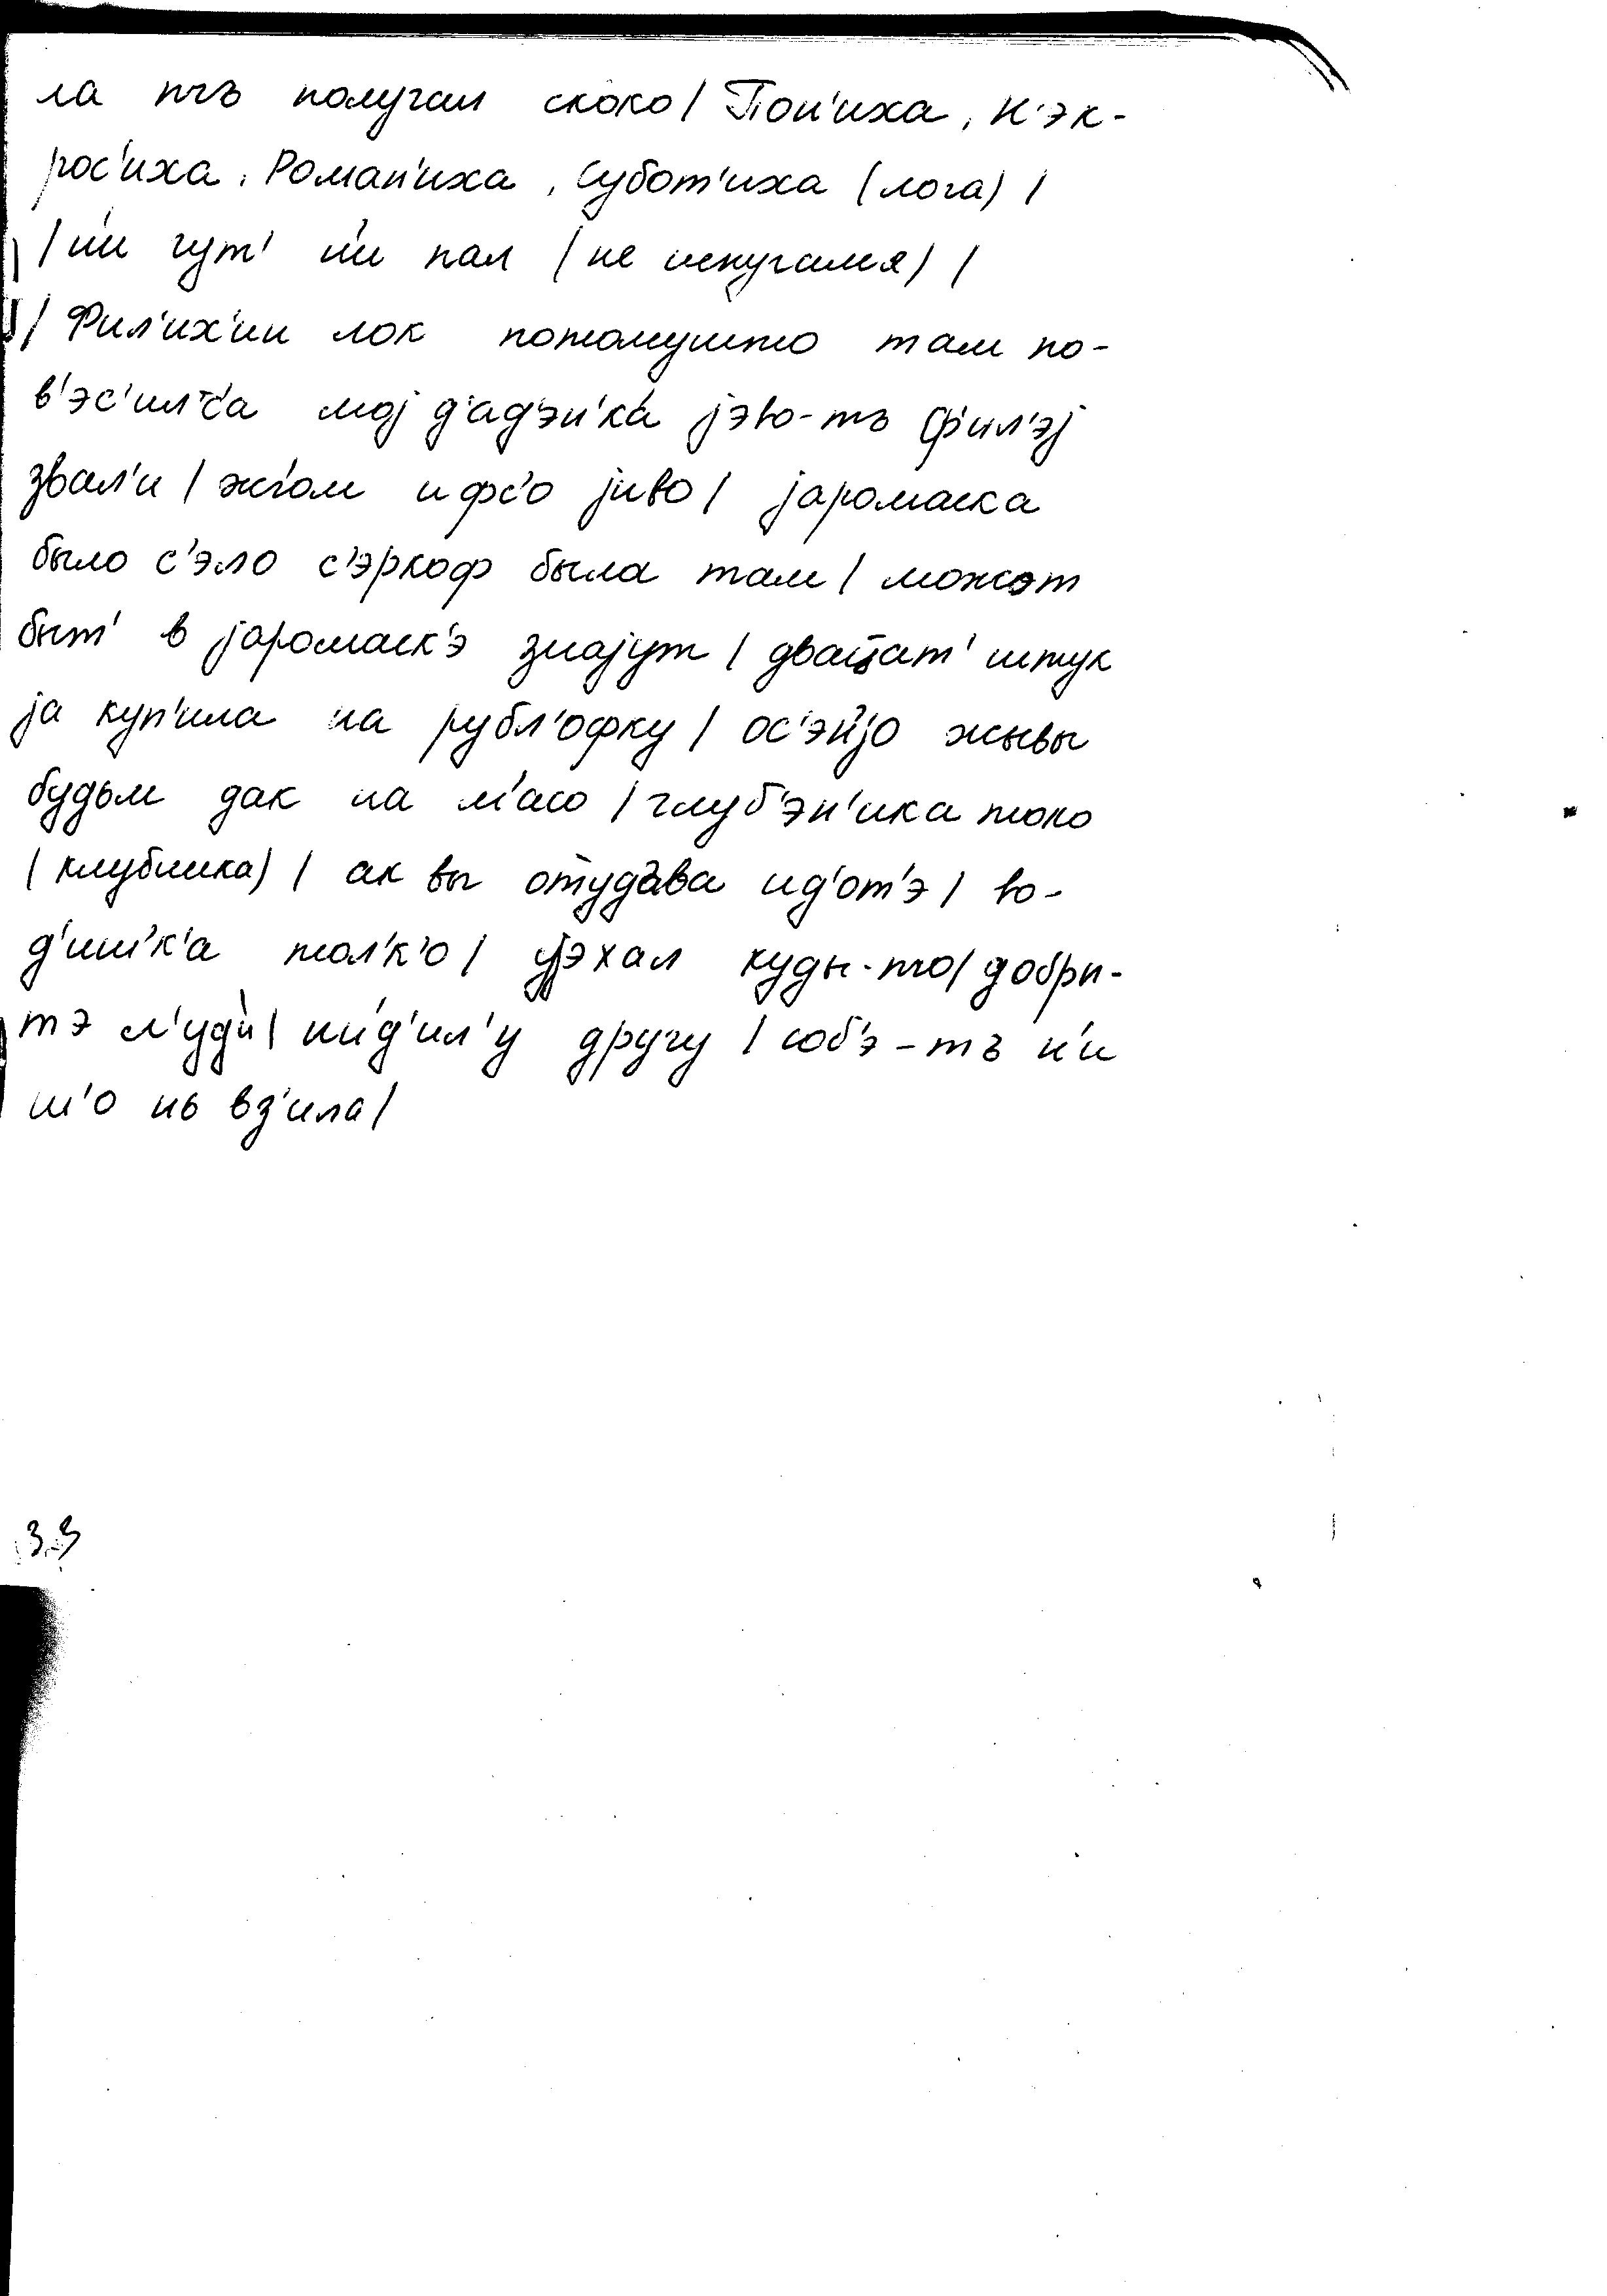 ла получал скоко / Поп'иха, Н'эк-
рос'иха, Роман'иха, Субот'иха (лога) /
/ н'и чут' н'и пал (не испугался) /
/ Фил'их'ин лок потомушто там по-
в'эс'илс'а мој д'ад'эн'ка јэво-тъ Фил'эј
звал'и / жгом и фс'о јиво / јаромаска
было с'эло с'эркоф была там / можэт
быт' в јаромаск'э знајут / двацат' штук
ја куп'ила на рубл'офку / ос'эн'јо жывы
будьм дак на м'асо / глуб'эн'ика токо
(клубника) / ак вы отудова ид'от'э / во-
д'ишк'а тол'к'о / ујэхал куды-то / добри-
тэ л'уд'и / н'ид'ил'у другу / соб'э-тъ н'и
ш'о нь вз'ила /